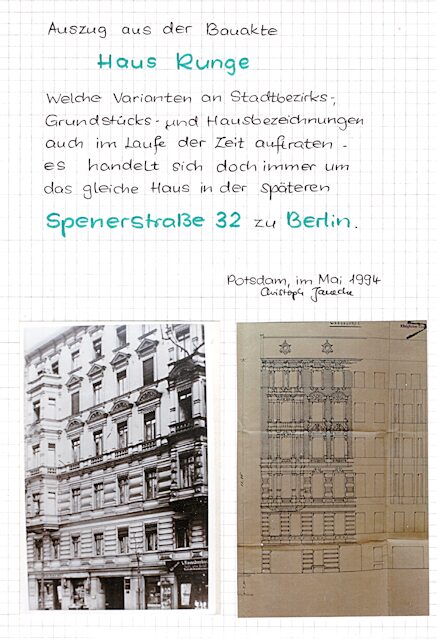 Auszug aus der Bauakte
Haus Runge
Welche Varianten an Stadtbezirks-,
Grundstücks- und Hausbezeichnungen
auch im Laufe der Zeit auftraten -
es handelt sich doch immer um
das gleiche Haus in der späteren
Spenerstraße 32 zu Berlin.
Potsdam, im Mai 1994
Christoph